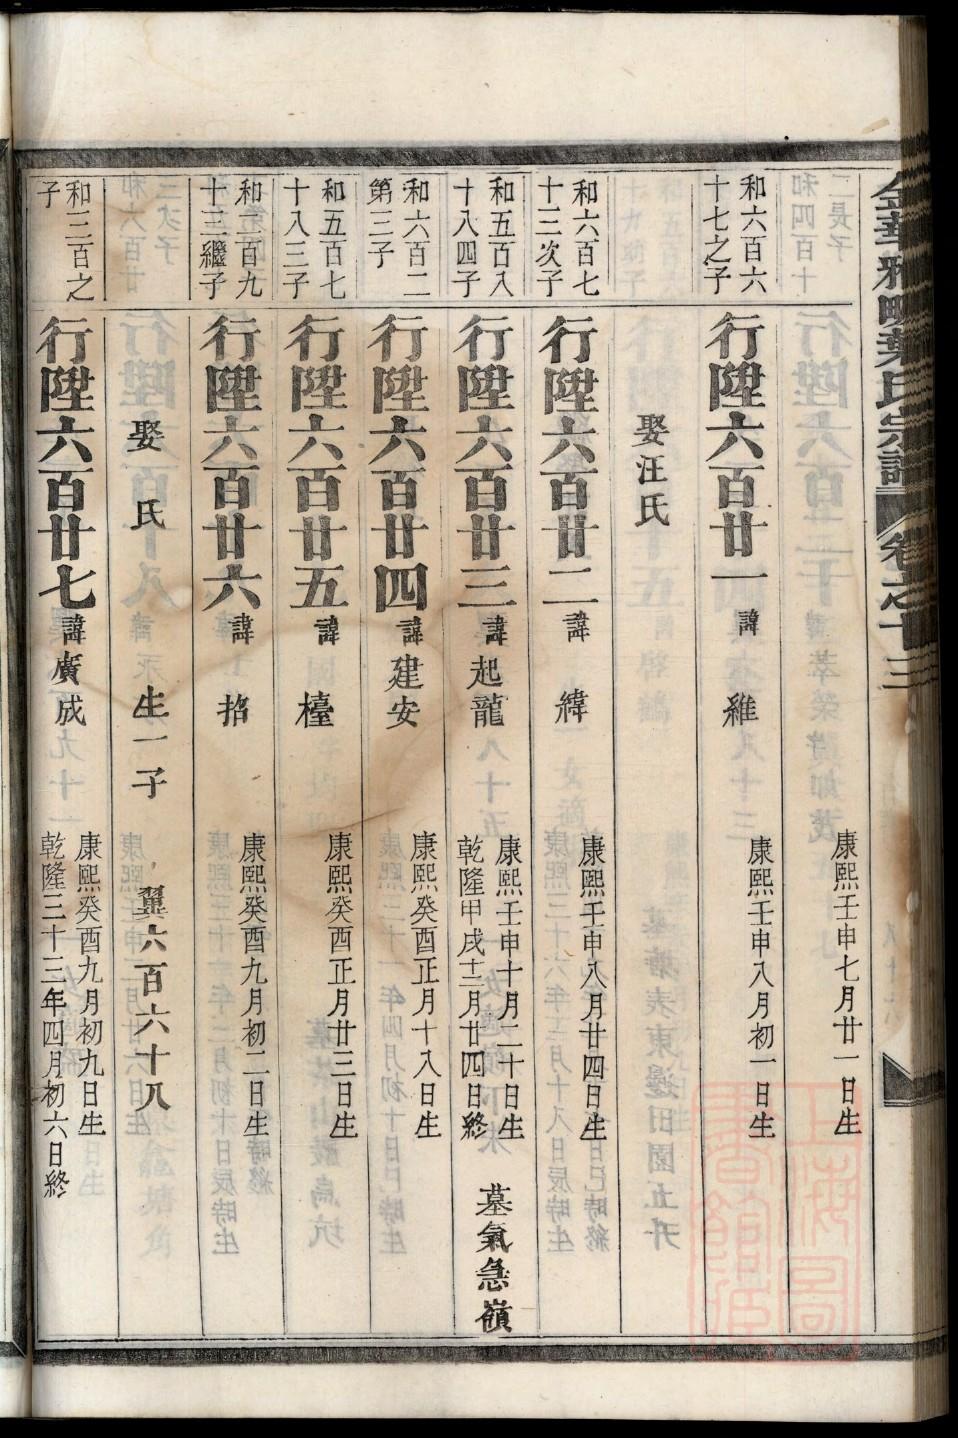 金華雅畈葉氏宗譜 卷之十三
康熙壬申七月廿一日生
和六百六十七之子
行陞六百廿一 諱 維 康熙壬申八月初一日生
娶汪氏
和六百七十三次子
行陞六百廿二 諱 緯 康熙壬申八月廿四日生
和五百八十八四子
行陞六百廿三 諱 起龍 康熙壬申十月二十日生
乾隆甲戌十二月廿四日終 墓氣急嶺
和六百二第三子
行陞六百廿四 諱 建安 康熙癸酉正月十八日生
和五百七十八三子
行陞六百廿五 諱 檯 康熙癸酉正月廿三日生
和二百九十三繼子
行陞六百廿六 諱 招 康熙癸酉九月初二日生
娶 氏 生一子 翼六百六十八
和三百之子
行陞六百廿七 諱廣成 康熙癸酉九月初九日生
乾隆三十三年四月初六日終
上海圖書館藏